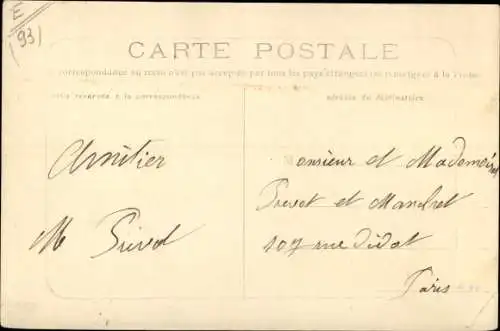 E
(93)
CARTE POSTALE
La correspondance au recto n'est pas acceptée par tous les pays étrangers (se renseigner à la Poste)
Côté réservé à la correspondance
Adresse du destinataire
Amitier
M Prevot
Monsieur et Mademoisel
Prevot et Mandret
107 rue Didot
Paris